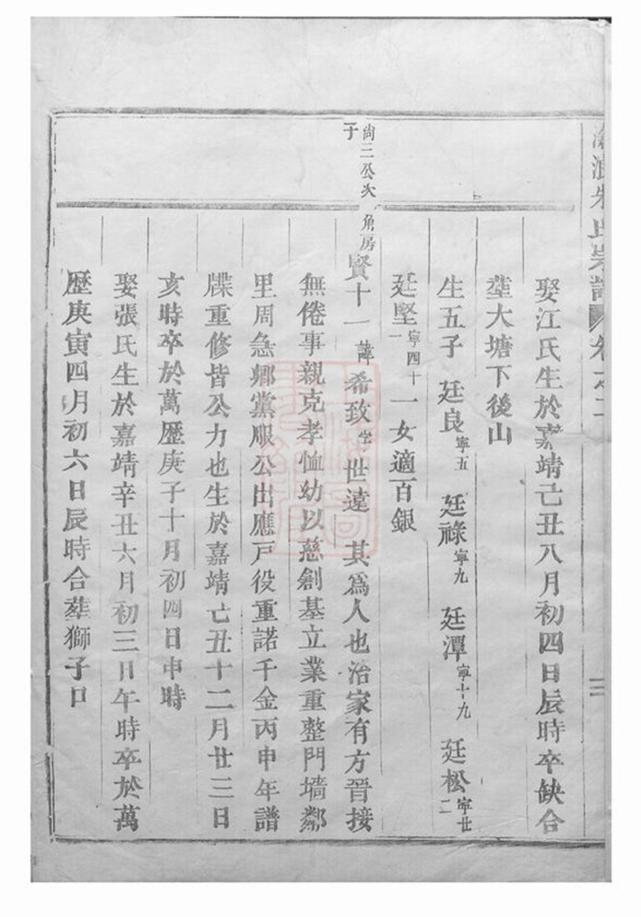 浪朱氏宗譜 卷之二
三
娶江氏生於嘉靖己丑八月初四日辰時卒缺合
塟大塘下後山
生五子 廷良寧五 廷祿寧九 廷潭寧十九 廷松寧廿二
廷堅寧四十一 一女適百銀
尙三公次子
角房 賢十一 諱希致字世遠 其爲人也治家有方晉接
無倦事親克孝恤幼以慈創基立業重整門墻鄰
里周急鄉黨服公出應戸役重諾千金丙申年譜
牒重修皆公力也生於嘉靖己丑十二月廿三日
亥時卒於萬歷庚子十月初四日申時
娶張氏生於嘉靖辛丑六月初三日午時卒於萬
歷庚寅四月初六日辰時合塟獅子口